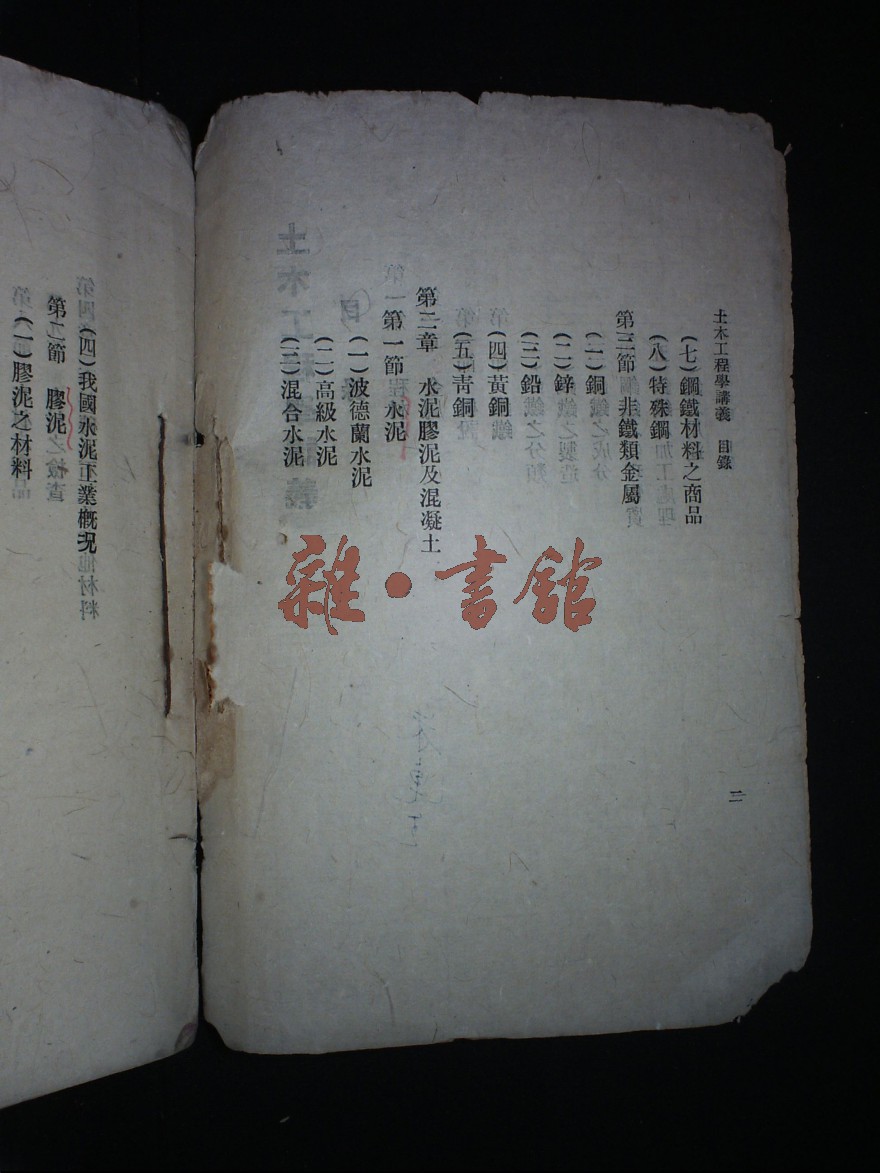 土木工程學講義　目錄
(七)鋼鐵材料之商品
(八)特殊鋼
第三節　非鐵類金屬
(一)銅
(二)鋅
(三)鉛
(四)黃銅
(五)靑銅
第二章　水泥膠泥及混凝土
第一節　水泥
(一)波德蘭水泥
(二)高級水泥
(三)混合水泥
二
(四)我國水泥工業概況
第二節　膠泥
(一)膠泥之材料
雜·書館